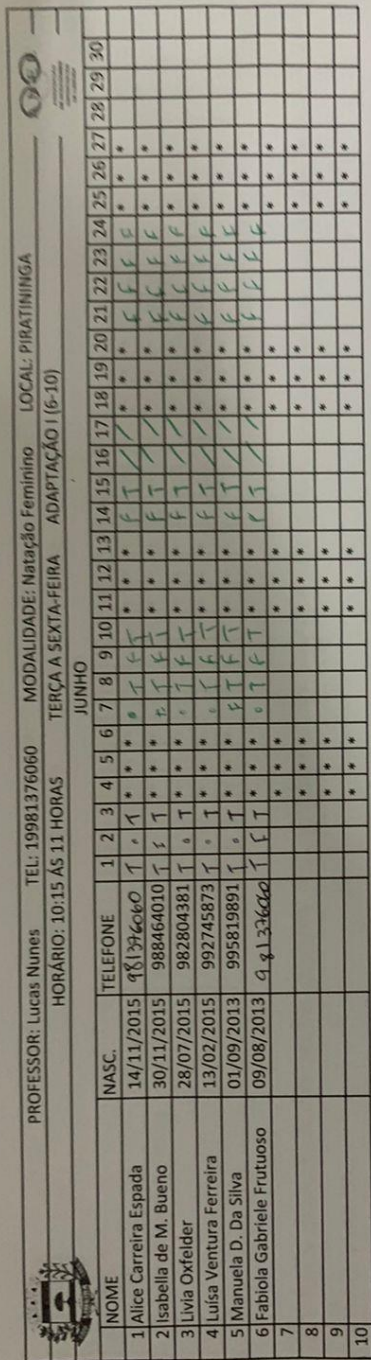 PROFESSOR: Lucas Nunes TEL: 19981376060 MODALIDADE: Natação Feminino LOCAL: PIRATININGA
HORÁRIO: 10:15 ÁS 11 HORAS TERÇA A SEXTA-FEIRA ADAPTAÇÃO I (6-10)
JUNHO
NOME NASC. TELEFONE 1 2 3 4 5 6 7 8 9 10 11 12 13 14 15 16 17 18 19 20 21 22 23 24 25 26 27 28 29 30
1 Alice Carreira Espada 14/11/2015 981376060 T . T * * * . T F T * * * F T / / * * * F F F F * * *
2 Isabella de M. Bueno 30/11/2015 988464010 T F T * * * F T F T * * * F T / / * * * F F F F * * *
3 Livia Oxfelder 28/07/2015 982804381 T . T * * * . T F T * * * F T / / * * * F F F F * * *
4 Luísa Ventura Ferreira 13/02/2015 992745873 T . T * * * . T F T * * * F T / / * * * F F F F * * *
5 Manuela D. Da Silva 01/09/2013 995819891 T . T * * * F T F T * * * F T / / * * * F F F F * * *
6 Fabiola Gabriele Frutuoso 09/08/2013 981376060 T F T * * * . T F T * * * F T / / * * * F F F F * * *
7 * * * * * * * * * * * *
8 * * * * * * * * * * * *
9 * * * * * * * * * * * *
10 * * * * * * * * * * * *